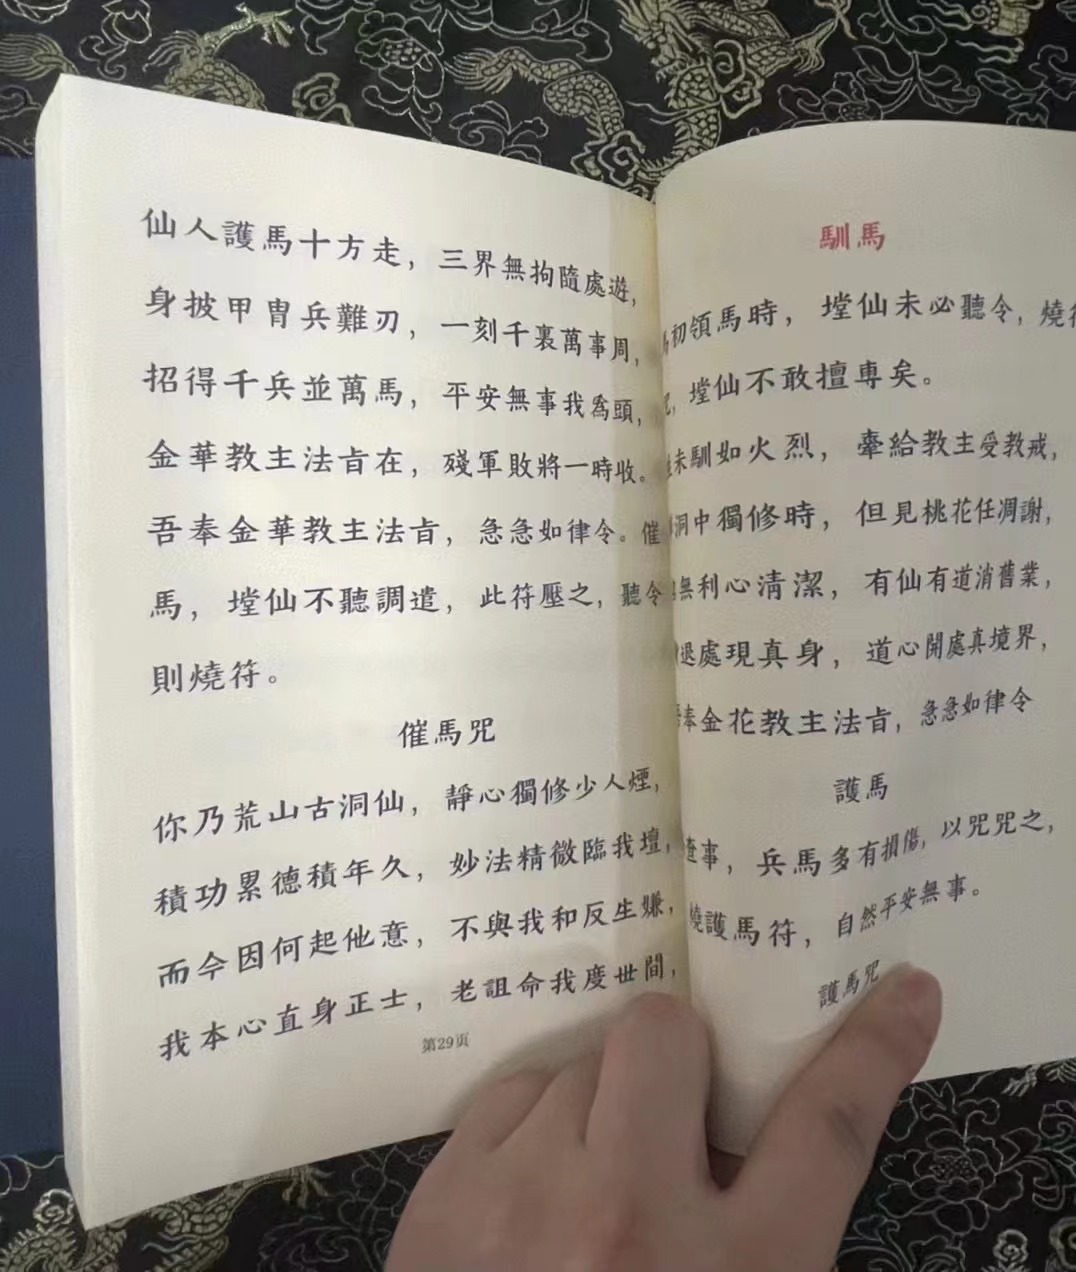 仙人護馬十方走，三界無拘隨處遊，
身披甲冑兵難刃，一刻千裏萬事周，
招得千兵並萬馬，平安無事我為頭，
金華教主法旨在，殘軍敗將一時收。
吾奉金華教主法旨，急急如律令。催
馬，堂仙不聽調遣，此符壓之，聽令
則燒符。
催馬咒
你乃荒山古洞仙，靜心獨修少人煙，
積功累德積年久，妙法精微臨我壇，
而今因何起他意，不與我和反生嫌，
我本心直身正士，老詛命我度世間，
第29页
馴馬
初領馬時，堂仙未必聽令，燒
堂仙不敢擅專矣。
未馴如火烈，牽給教主受教戒，
洞中獨修時，但見桃花任凋謝，
無利心清潔，有仙有道消舊業，
退處現真身，道心開處真境界，
奉金花教主法旨，急急如律令
護馬
查事，兵馬多有損傷，以咒咒之，
燒護馬符，自然平安無事。
護馬咒